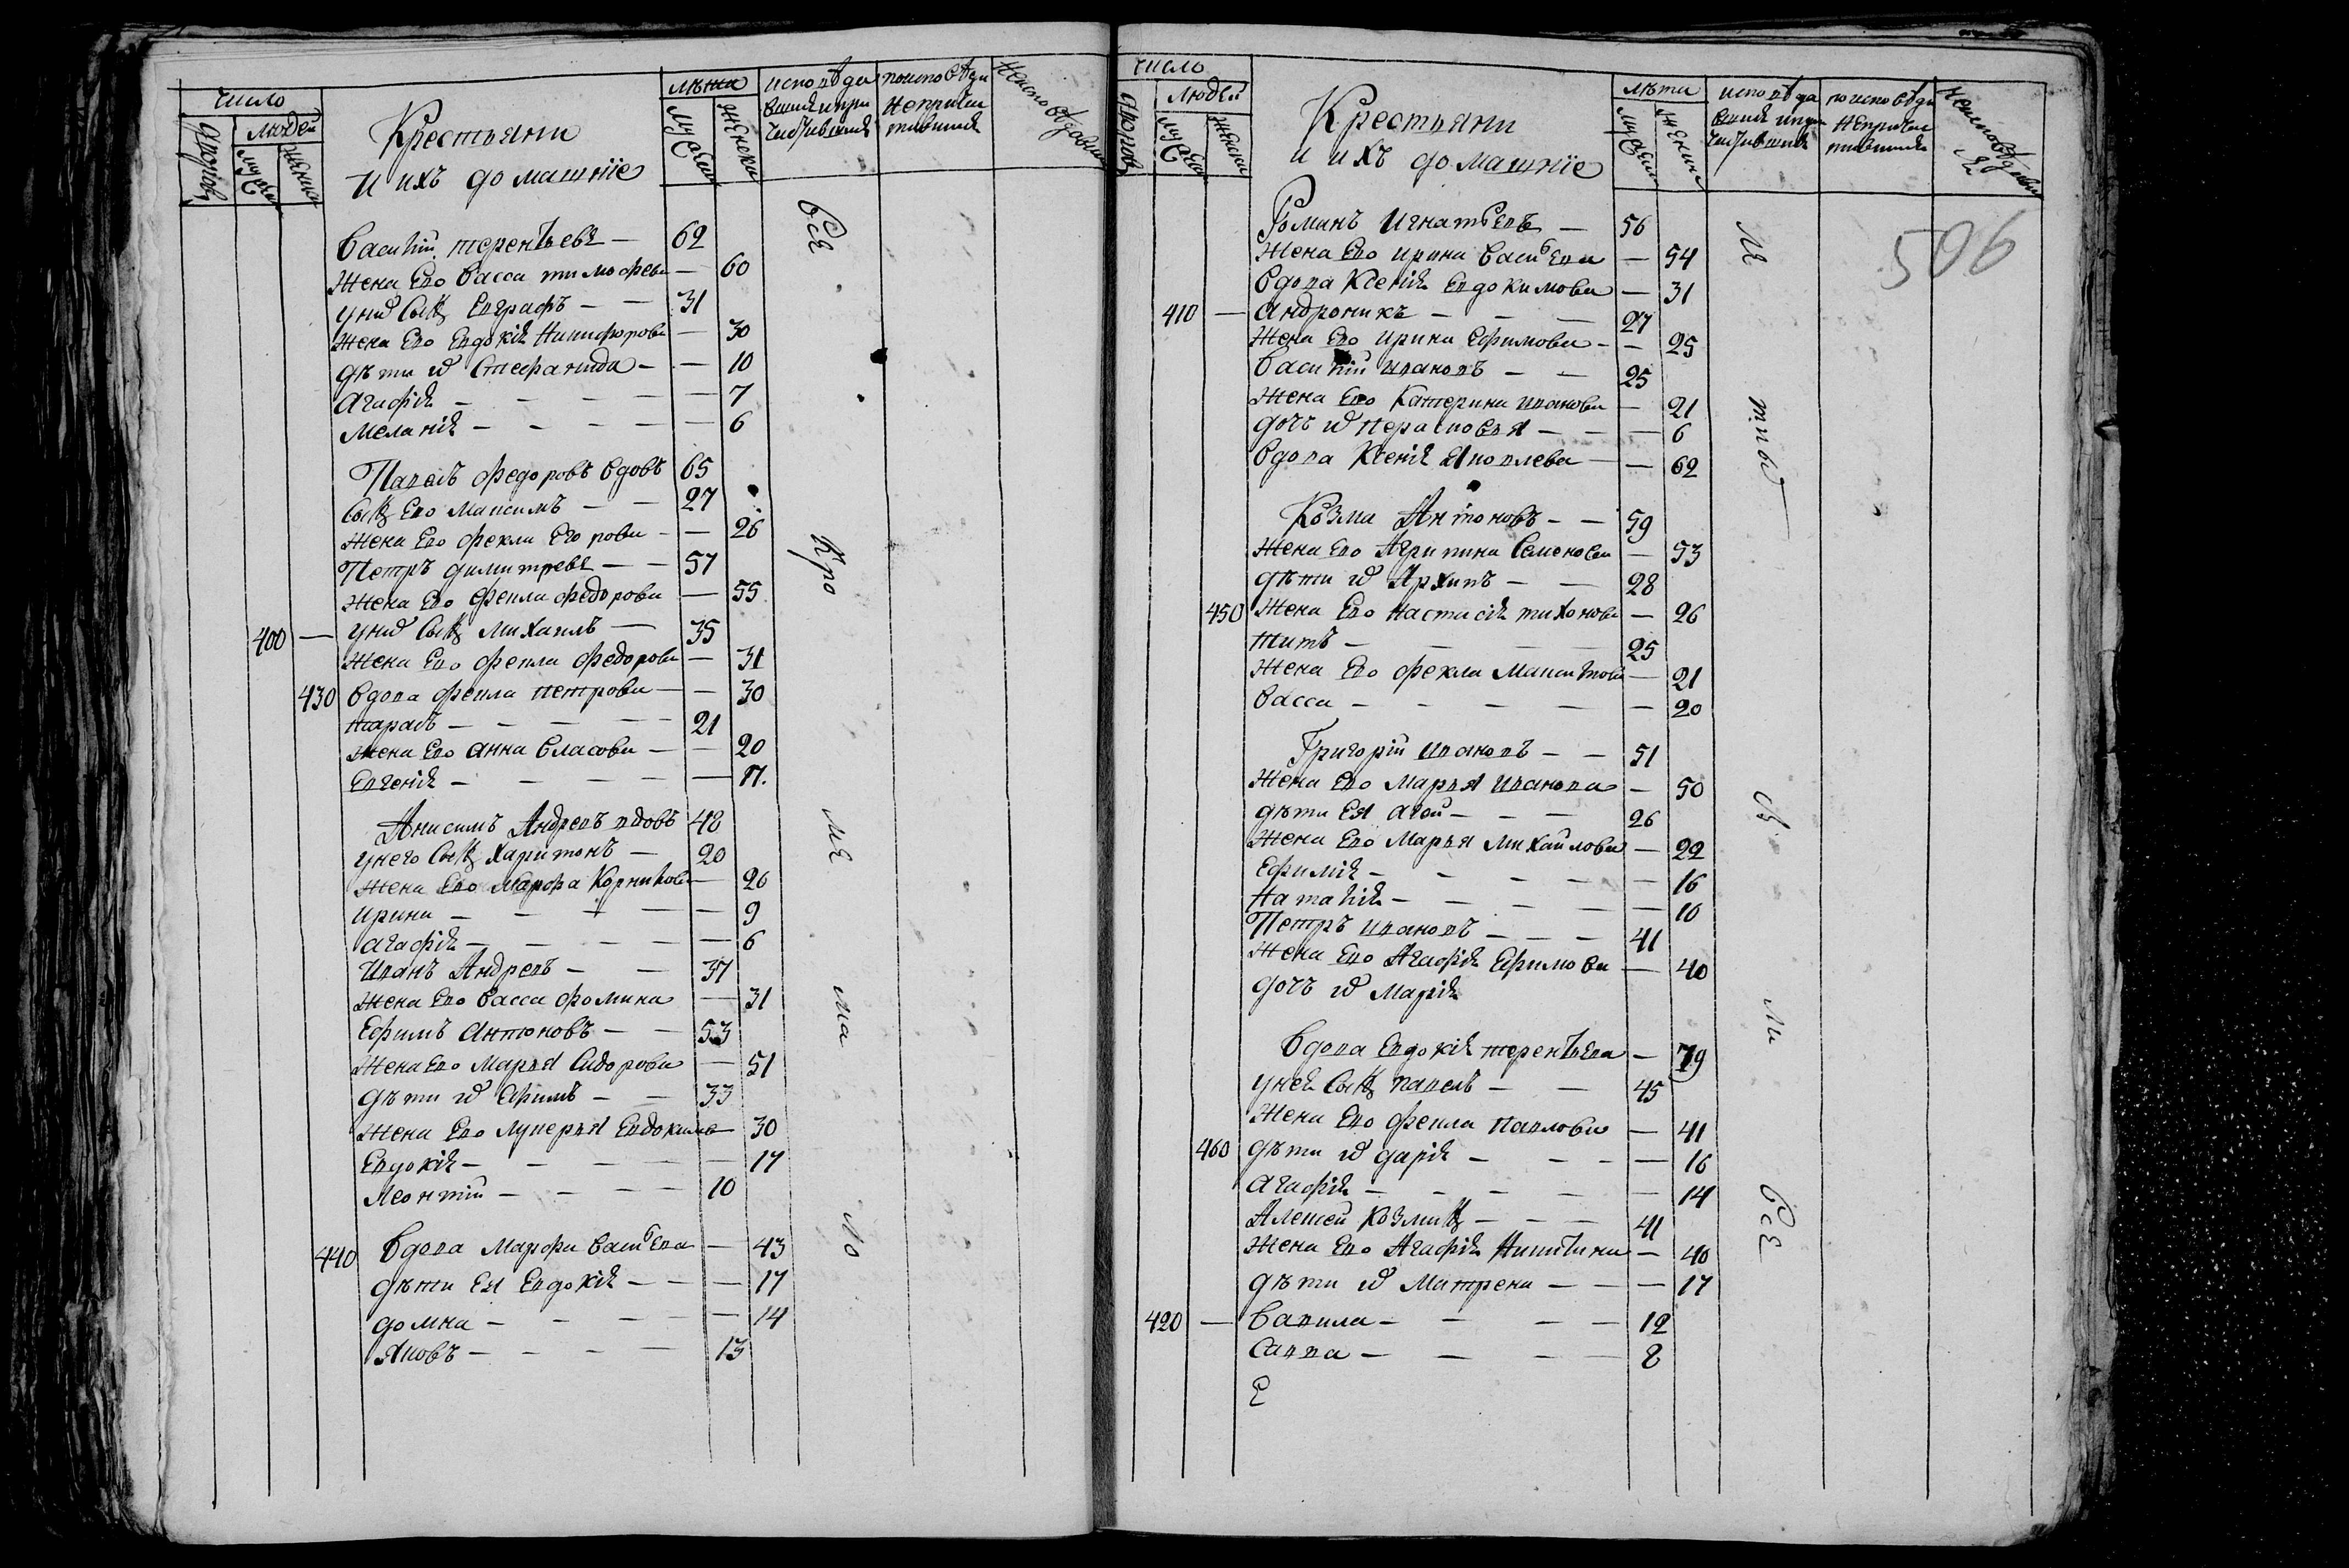 число
людей
дворовъ
мужеск
женска
Крестьяни
и ихъ домашніе
лѣта
мужеск
женска
исповѣда
вшихся и при
чащавшихся
по исповѣди
не прича
щавшихся
не исповѣдавши
Василій терентьевъ — 62
жена Ево Васса тимофеева — 60
у них Сынъ Евграфъ — — 31
жена Ево Евдокія Никифорова — 30
дѣти их Стефанида — — 10
Агафія — — — — — 7
Меланія — — — — — 6
Павелъ федоровъ вдовъ 65
Сынъ Ево Максимъ — — 27
жена Ево фекла Егорова — — 26
Петръ димитревъ — — 57
жена Ево фекла федорова — 55
400 — у них Сынъ Михаилъ — 35
жена Ево фекла федорова — 31
430 вдова фекла петрова — — 30
тарасъ — — — — — 21
жена Ево анна Власова — — 20
Евгенія — — — — — 17.
Анисимъ Андревъ вдовъ 48
у него Сынъ Харитонъ — 20
жена Ево Марфа Корнилова — 26
ирина — — — — — 9
агафія — — — — — 6
Иванъ Андревъ — — 37
жена Ево Васса фомина — 31
Ефимъ антоновъ — — 53
жена Ево Марья Сидорова — 51
дѣти их Ефимъ — — 33
жена Ево лукерья Евдокимова — 30
Евдокія — — — — — 17
леонтій — — — — 10
440 вдова Марфа Васильева — 43
дѣти Ея Евдокія — — — 17
домна — — — — — 14
Яковъ — — — — 13
Вся
Кро
мя
ма
ло
число
людей
дворовъ
мужеск
женска
Крестьяни
и ихъ домашніе
лѣта
мужеск
женска
исповѣда
вшихся и при
чащавшихся
по исповѣди
не прича
щавшихся
не исповѣдавши
ся
506
Романъ Игнатьевъ — 56
жена Ево ирина Васильева — 54
вдова Ксенія Евдокимова — 31
410 — андроникъ — — — 27
жена Ево ирина Ефимова — — 25
Василій ивановъ — — 25
жена Ево Катерина иванова — 21
дочь их Перасковья — — — 6
вдова Ксенія Яковлева — — 62
Козма Антоновъ — — 59
жена Ево Агрипина Семенова — 53
дѣти их Архипъ — — 28
450 жена Ево настасія тихонова — 26
титъ — — — — 25
жена Ево фекла Максимова — 21
Васса — — — — — 20
Григорій ивановъ — — 51
жена Ево Марья иванова — 50
дѣти Ея агей — — — 26
жена Ево Марья михайлова — 22
Ефимія — — — — — 16
Наталія — — — — — 10
Петръ ивановъ — — — 41
жена Ево Агафія Ефимова — 40
дочь их Марія
вдова Евдокія терентьева — 79
у ней Сынъ павелъ — — 45
жена Ево фекла павлова — 41
460 дѣти их дарія — — — — 16
Агафія — — — — — 14
Алексей Козминъ — — — 41
жена Ево Агафія Никитина — 40
дѣти их Матрена — — — 17
420 — Вавила — — — — 12
Савва — — — — 8
Е